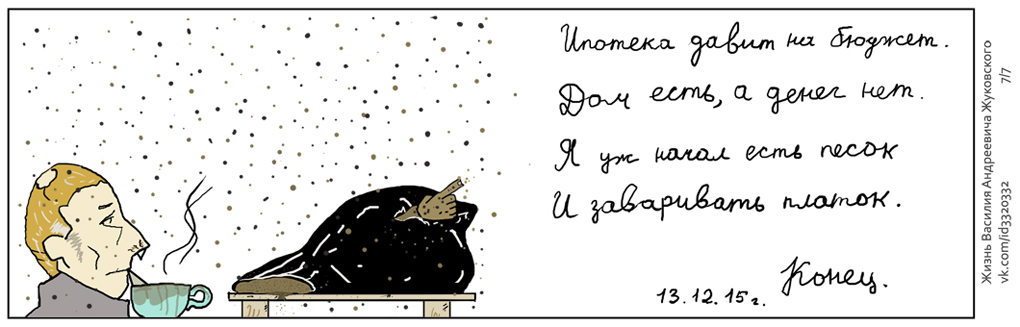 Ипотека давит на бюджет.
Дом есть, а денег нет.
Я уж начал есть песок
И заваривать платок.
Конец.
13.12.15г.
Жизнь Василия Андреевича Жуковского 7/7
vk.com/id3320332